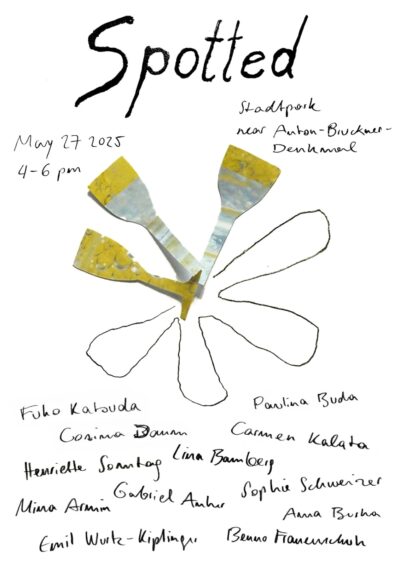 Spotted
May 27 2025
4-6 pm
Stadtpark
near Anton-Bruckner-
Denkmal
Paulina Buda
Cosima
Carmen Kalata
Henriette Sonntag
Lina Bamberg
Gabriel
Sophie Schweizer
Mima Armin
Anna
Emil Wurtz-Kiplinger
Benno